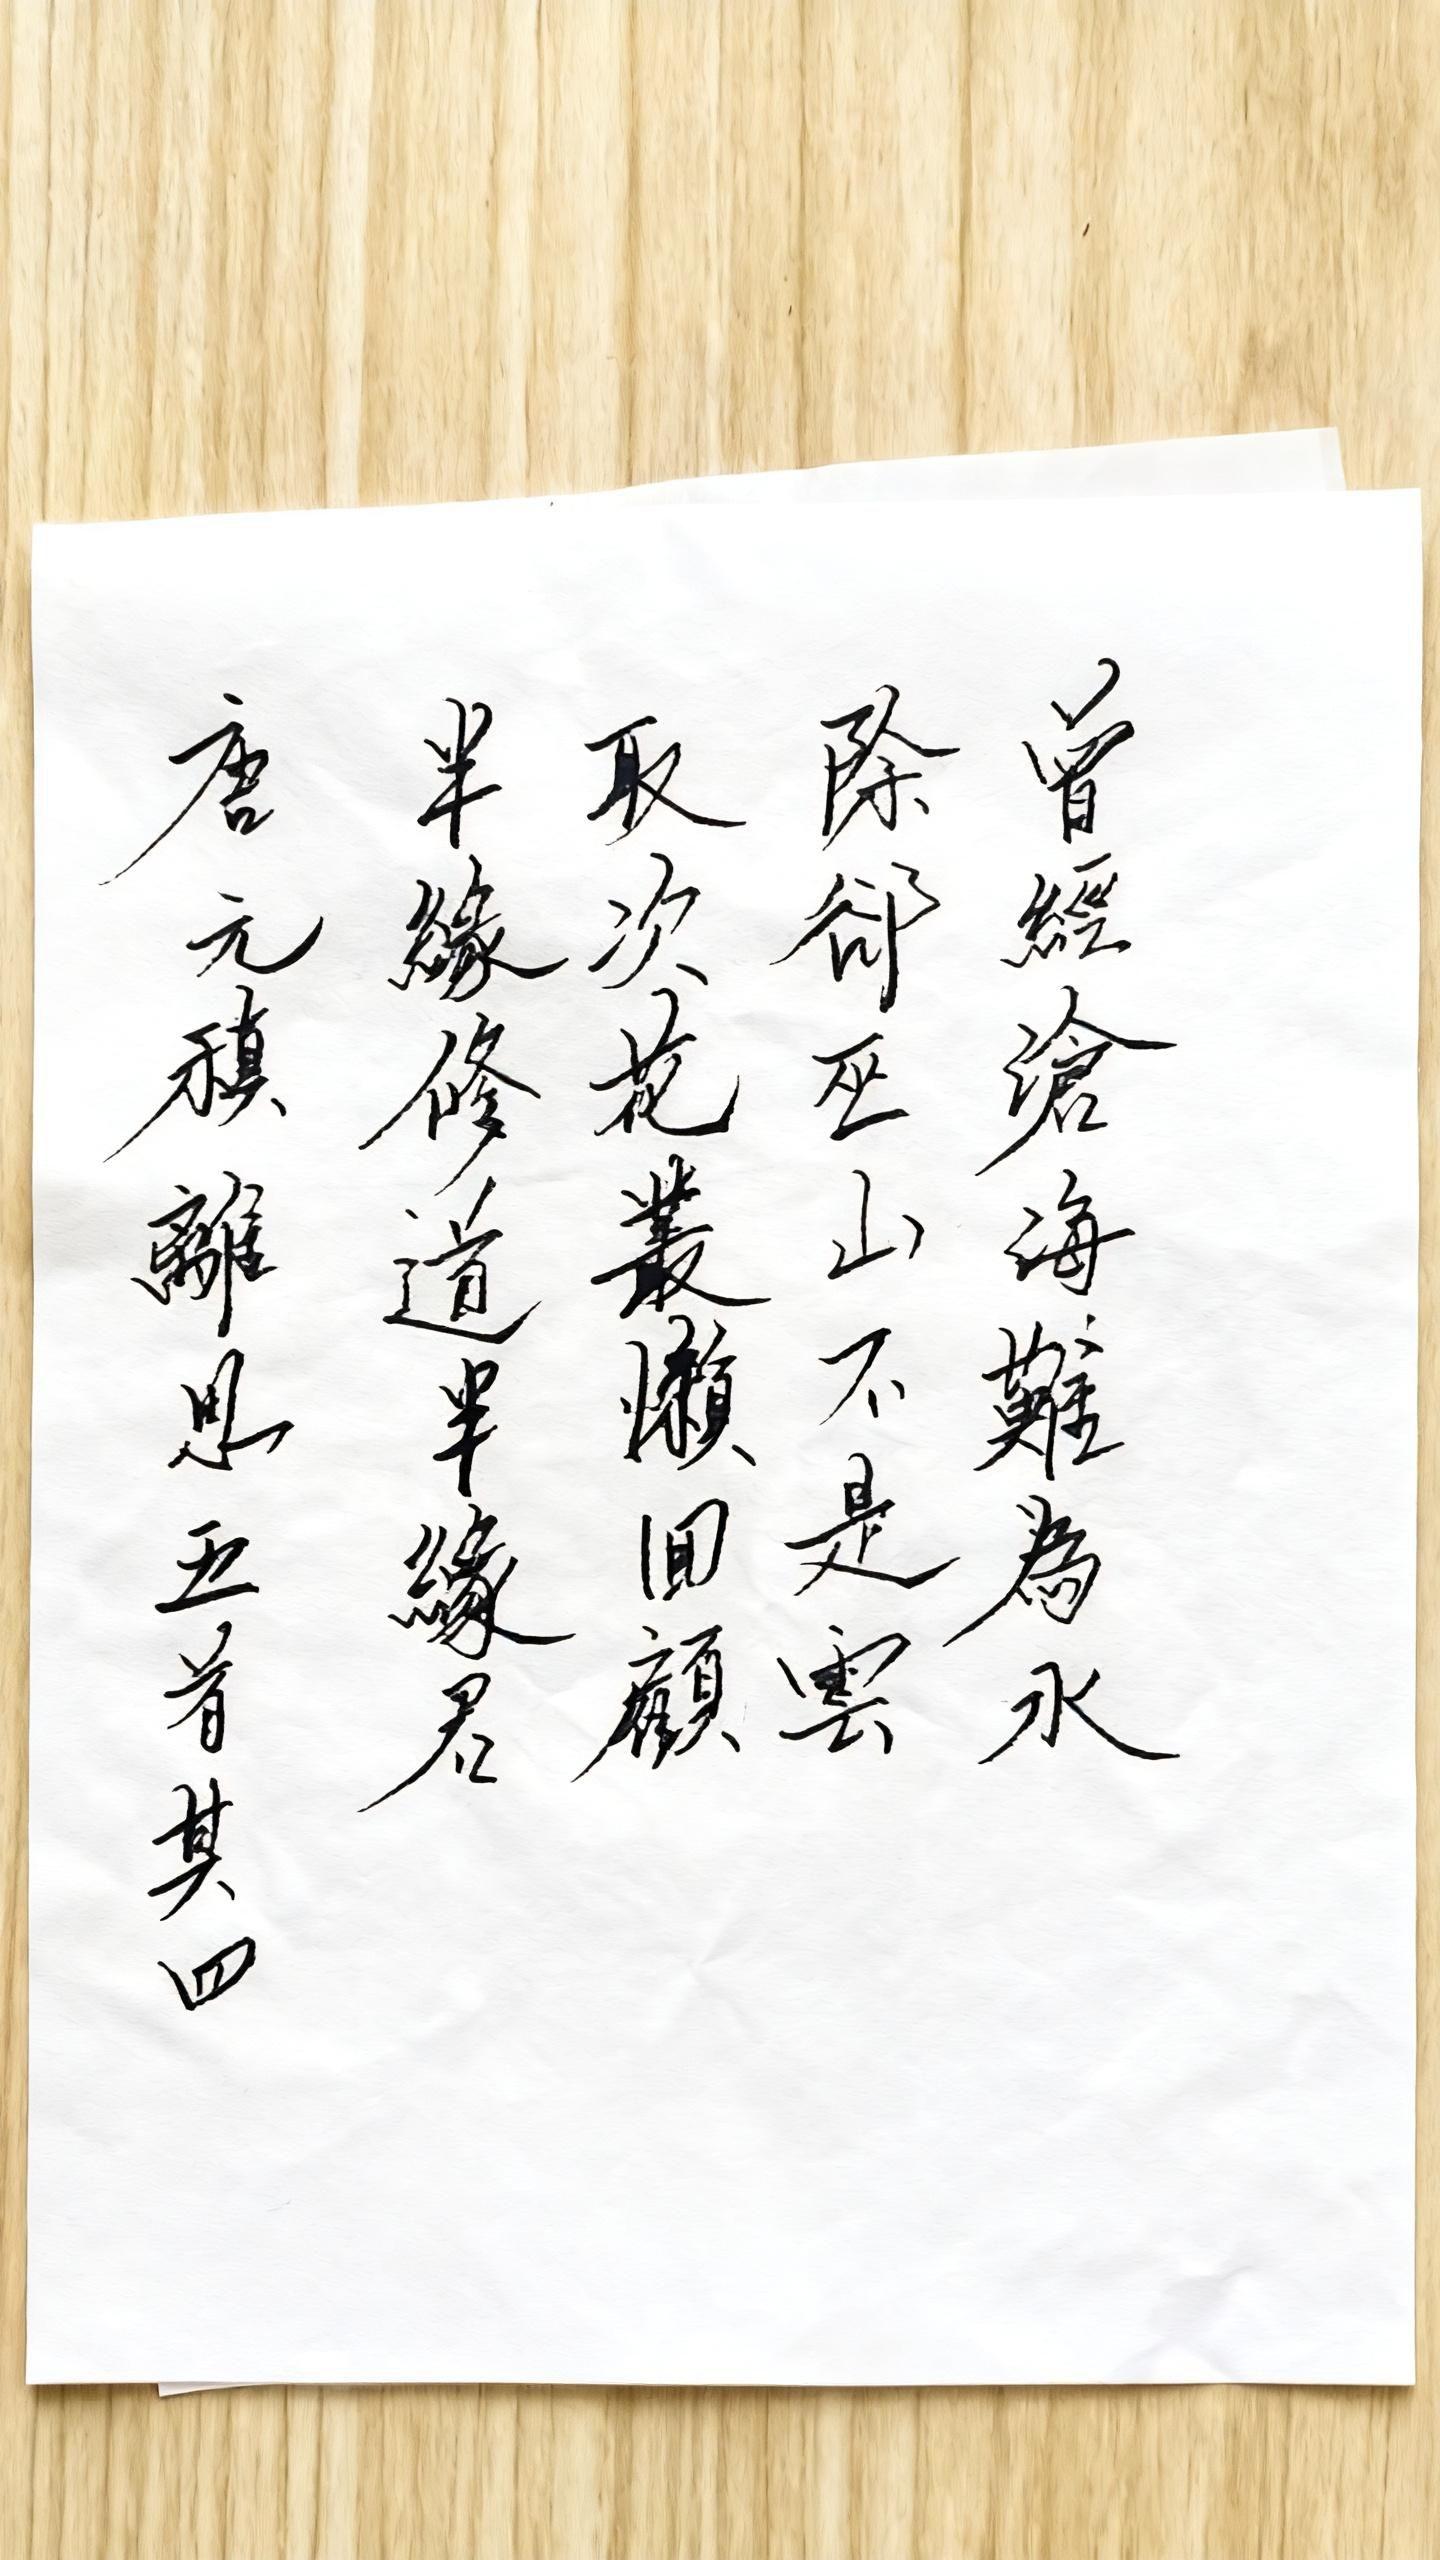 曾經滄海難為水
除卻巫山不是雲
取次花叢懶回顧
半緣修道半緣君
唐元稹離思五首其四